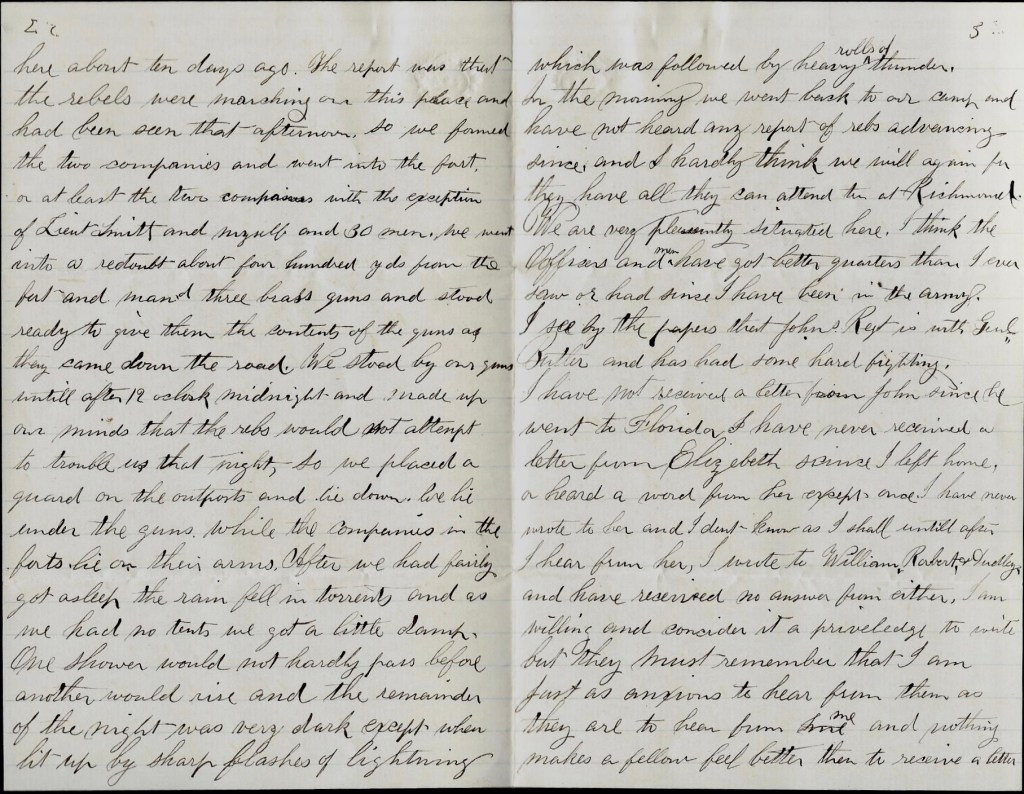 2
here about ten days ago. The report was that
the rebels were marching on this place and
had been seen that afternoon. so we formed
the two companies and went into the fort.
or at least the two companies with the exception
of Lieut Smith and myself and 30 men. We went
into a redoubt about four hundred yds from the
fort and mand three brass guns and stood
ready to give them the contents of the guns as
they came down the road. We stood by our guns
untill after 12 oclock midnight and made up
our minds that the rebs would not attempt
to trouble us that night, so we placed a
guard on the outposts and lie down. We lie
under the guns. while the companies in the
forts lie on their arms. After we had fairly
got asleep the rain fell in torrents and as
we had no tents we got a little damp.
One shower would not hardly pass before
another would rise and the remainder
of the night was very dark except when
lit up by sharp flashes of lightning
3
which was followed by heavy rolls of thunder.
In the morning we went back to our camp and
have not heard any report of rebs advancing
since, and I hardly think we will again for
they have all they can attend to at Richmond.
We are very pleasently situated here. I think the
Officers and men have got better quarters than I ever
saw or had since I have been in the army.
I see by the papers that John is with Genl
Butler and has had some hard fighting.
I have not received a letter from John since he
went to Florida I have never received a
letter from Elizebeth since I left home,
or heard a word from her except once. I have never
wrote to her and I dont know as I shall untill after
I hear from her, I wrote to William, Robert, & Dudley
and have received no answer from either. I am
willing and concider it a priveledge to write
but they must remember that I am
just as anxious to hear from them as
they are to hear from me and nothing
makes a fellow feel better than to receive a letter